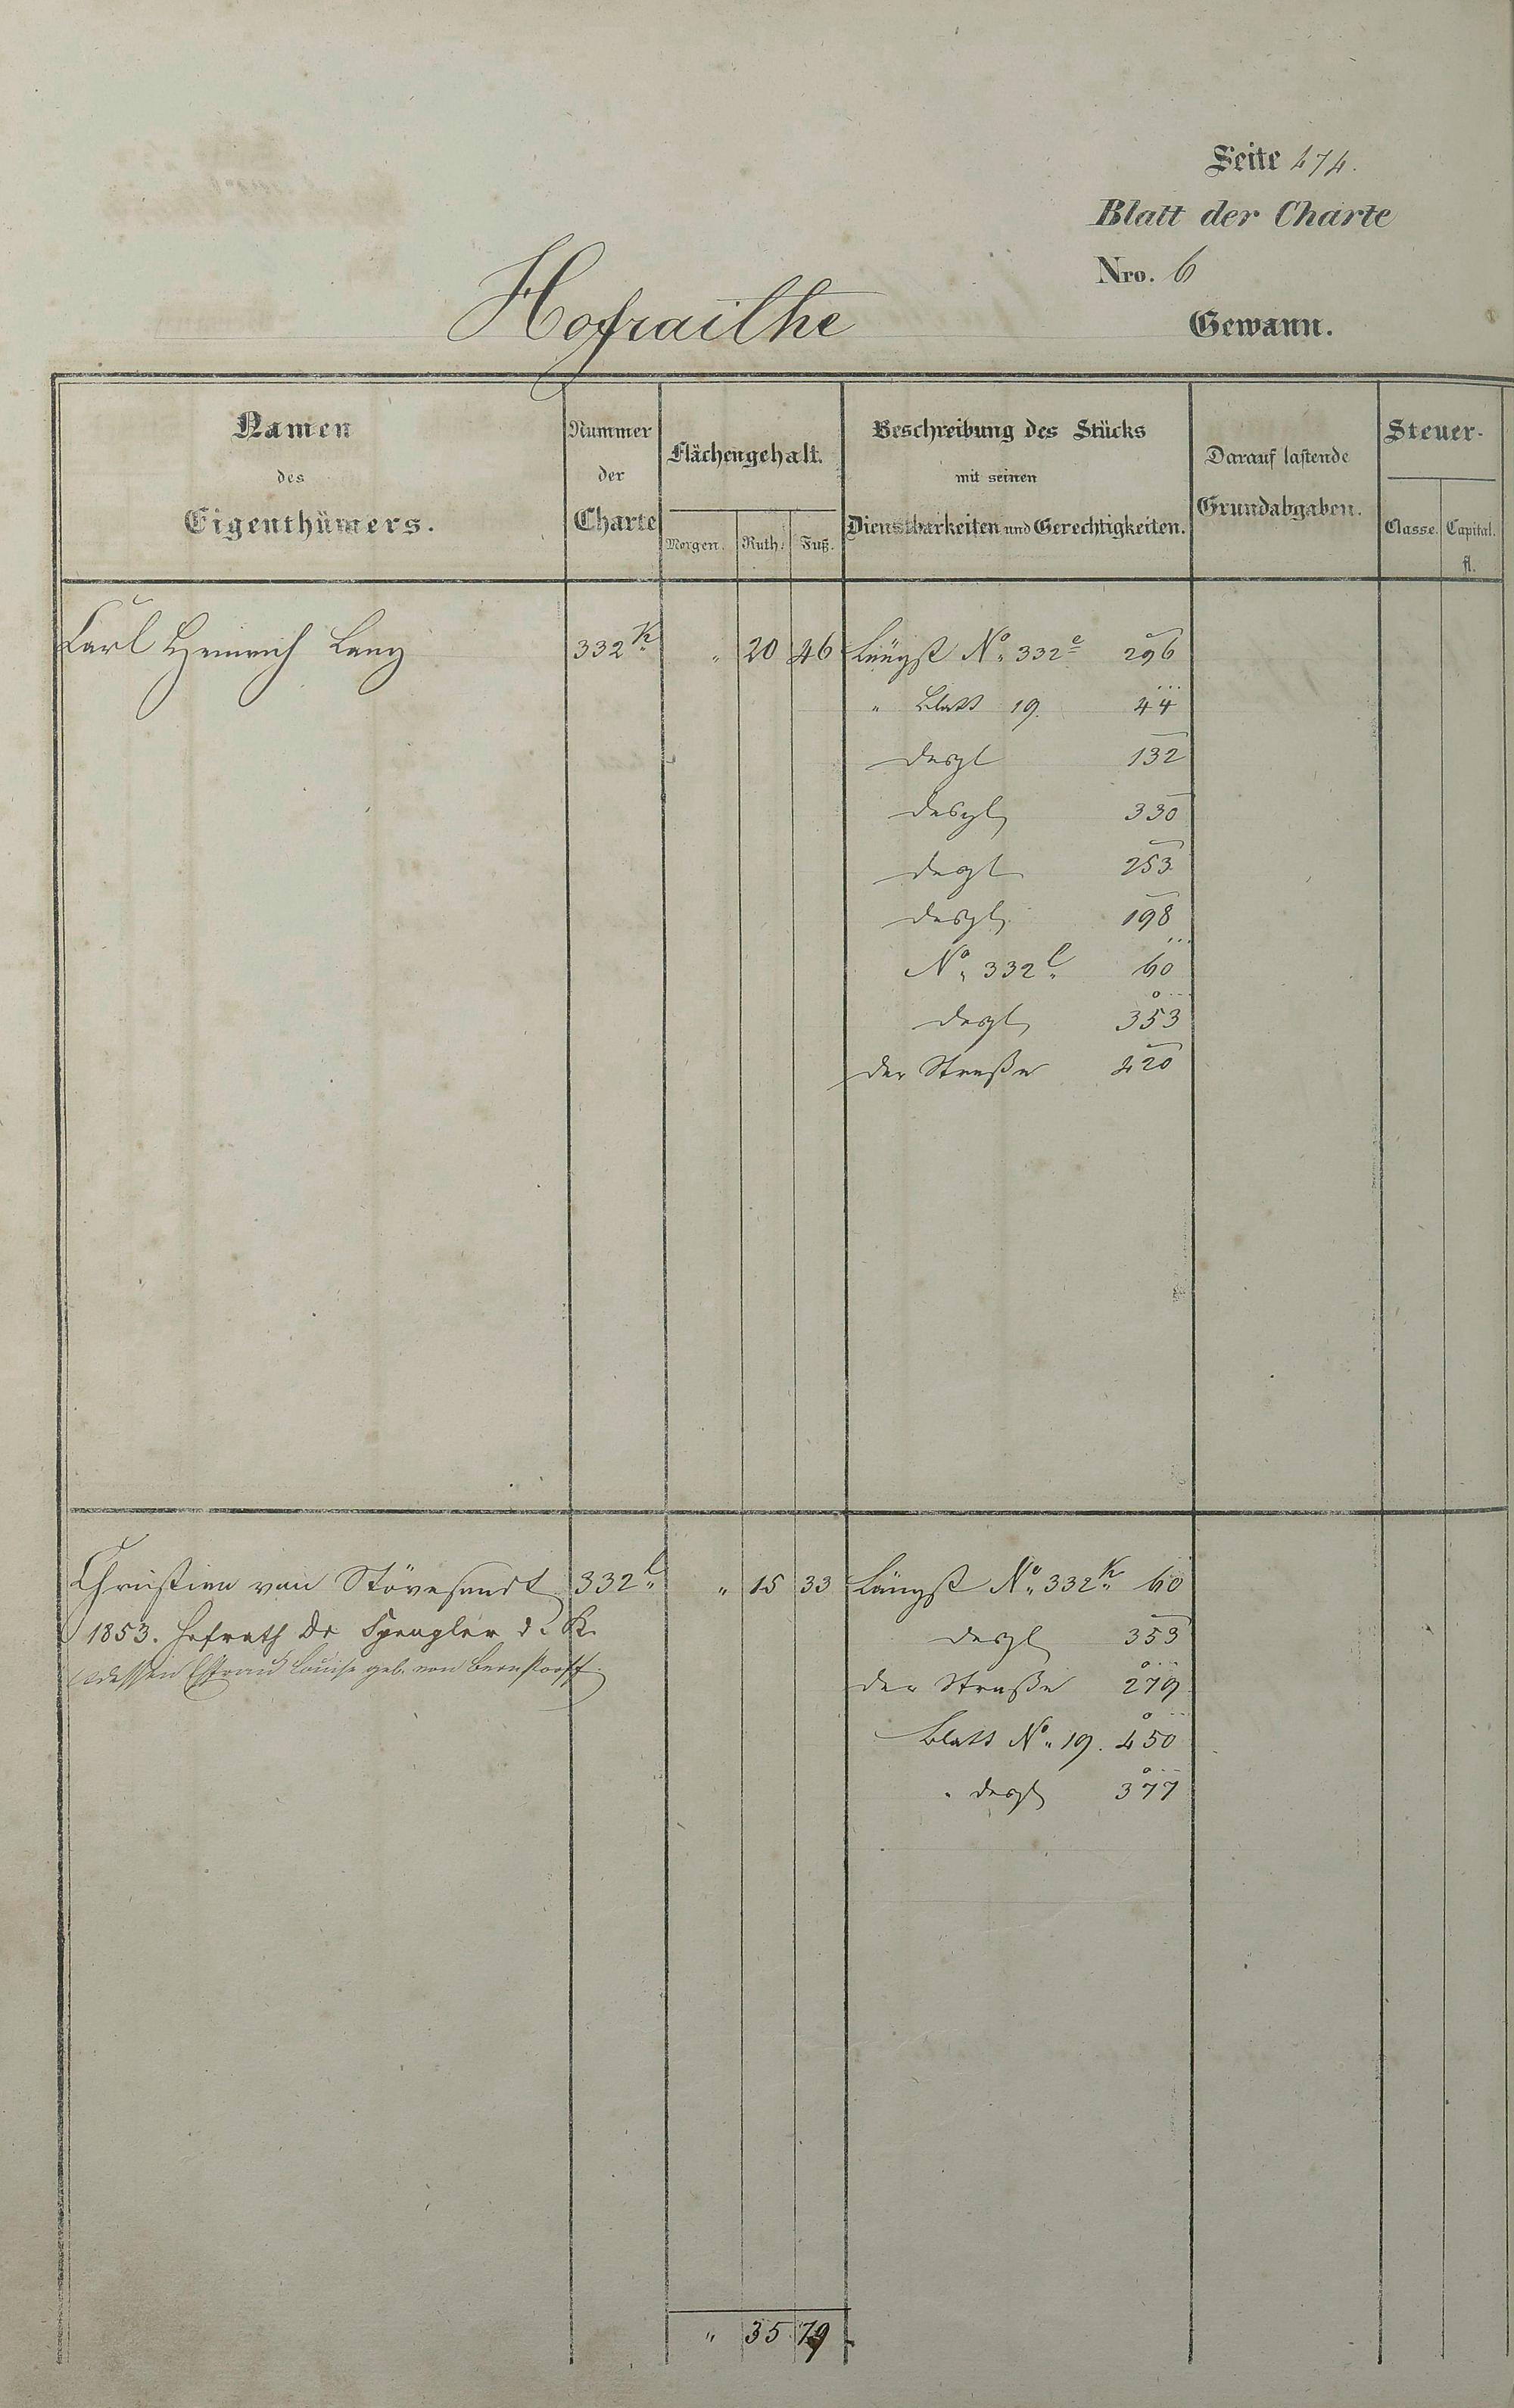 Seite 474.
Blatt der Charte
Nro. 6
Hofraithe Gewann.
Namen des Eigenthümers.
Nummer der Charte
Flächengehalt.
Morgen. Ruth. Fuß.
Beschreibung des Stücks mit seinen Dienstbarkeiten und Gerechtigkeiten.
Darauf lastende Grundabgaben.
Steuer-
Classe. Capital.
fl.
Carl Heinrich Lang 332 K " 20 46 Längst No. 332 e 296
" Blatt 19. 44
desgl 132
desgl 330
desgl 253
desgl 198
No. 332 l 60
desgl 353
der Straße 420
Christian von Stövesandt 332 l " 15 33 Längst No. 332 K 60
1853. Hofrath Dr Spengler d. K. desgl 353
dessen Ehefrau Louise geb. von Bernstorff
der Straße 279
Blatt No. 19. 450
" desgl 377
" 35 79